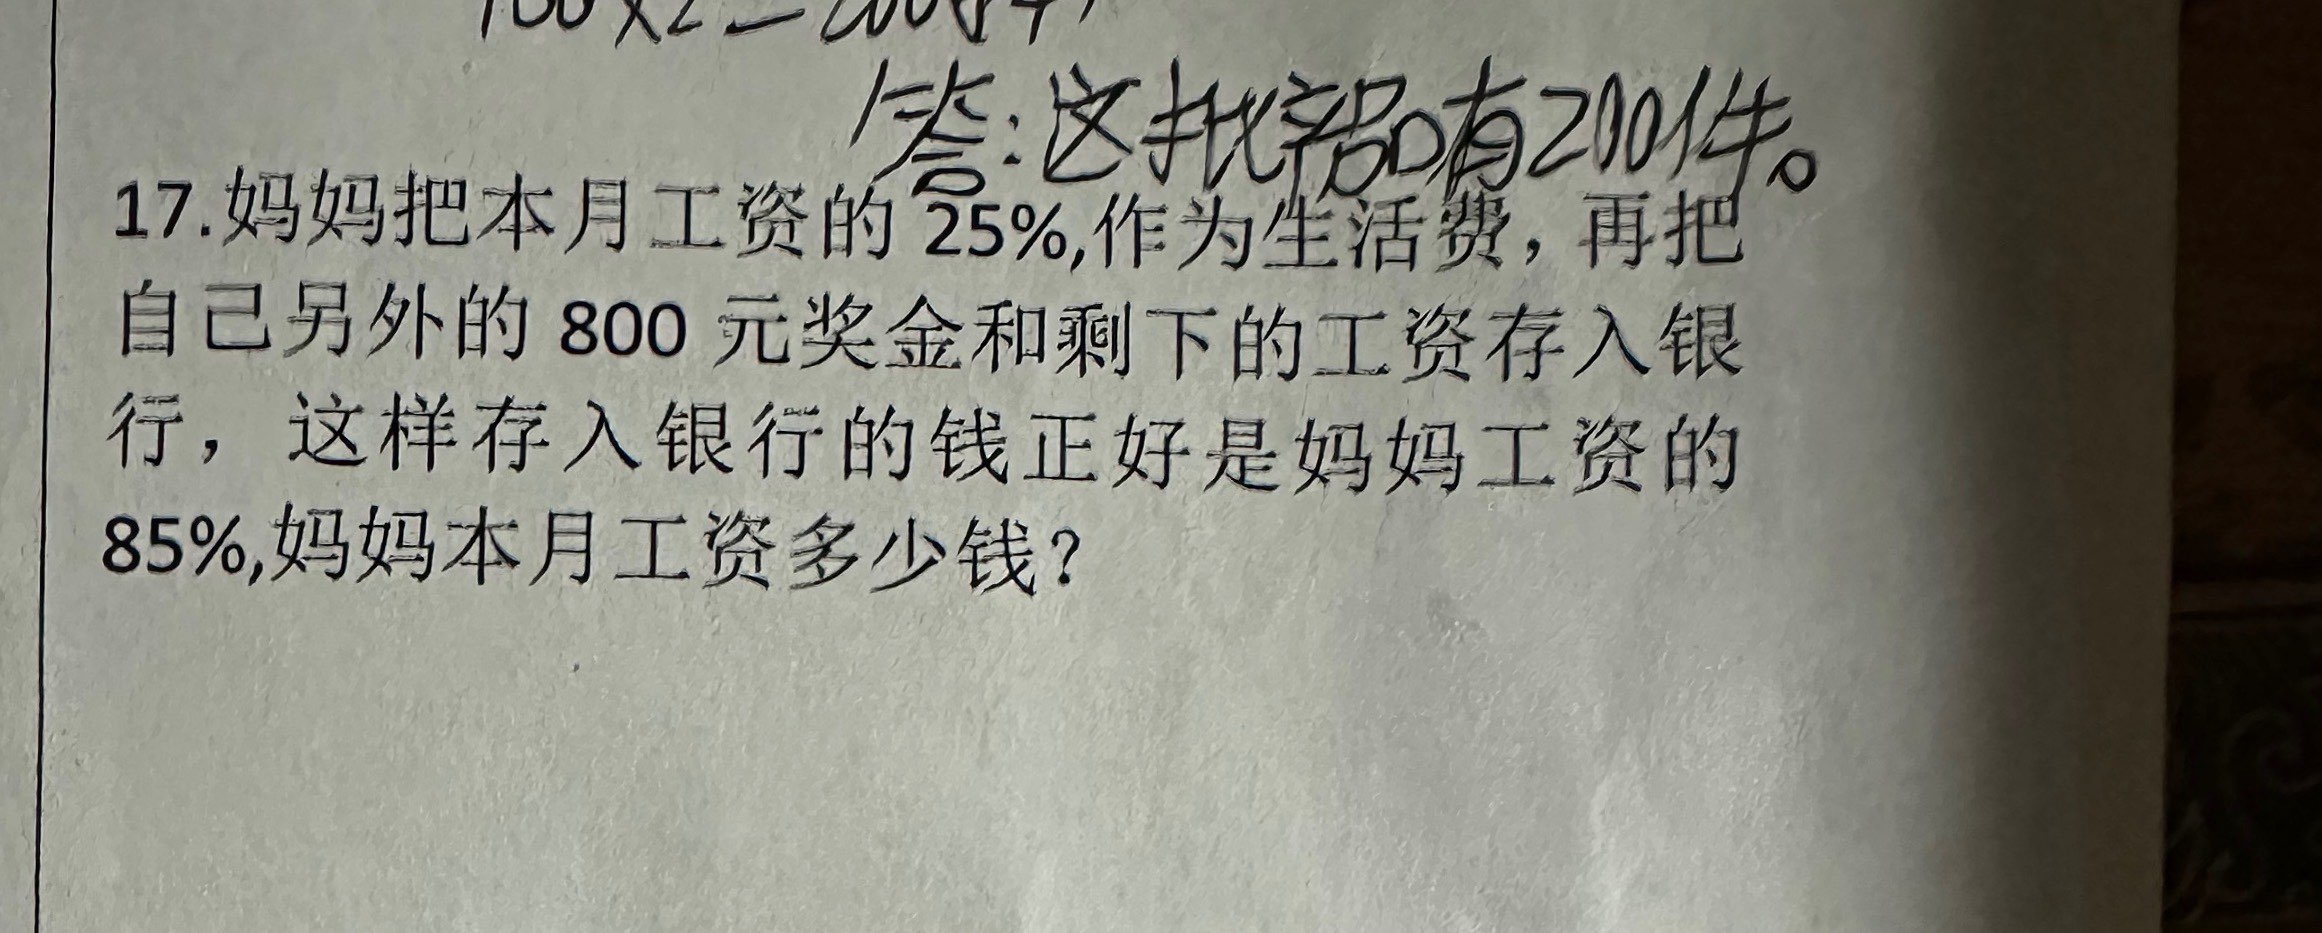 100×2=200(件)
答:这批零件有200件。
17.妈妈把本月工资的 25%,作为生活费，再把
自己另外的 800 元奖金和剩下的工资存入银
行，这样存入银行的钱正好是妈妈工资的
85%,妈妈本月工资多少钱?